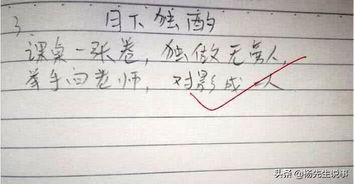 3、 月下独酌
课桌一张卷，独做无宾人，
举手向老师，对影成一人
头条 @杨先生说事